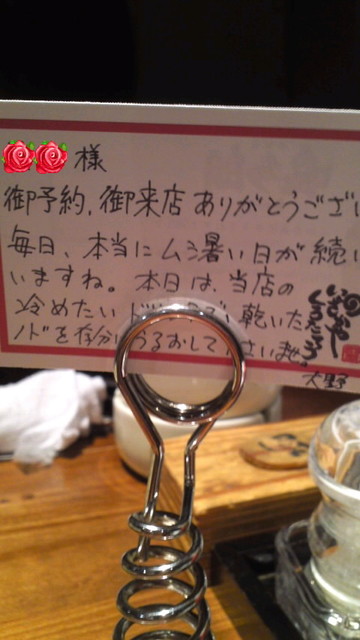 様
御予約、御来店ありがとうござい
毎日、本当にムシ暑い日が続い
いますね。本日は、当店の
冷めたい 乾いた
ノドを存分 うるおして さいませ。
いざかや
くろたろう
大野